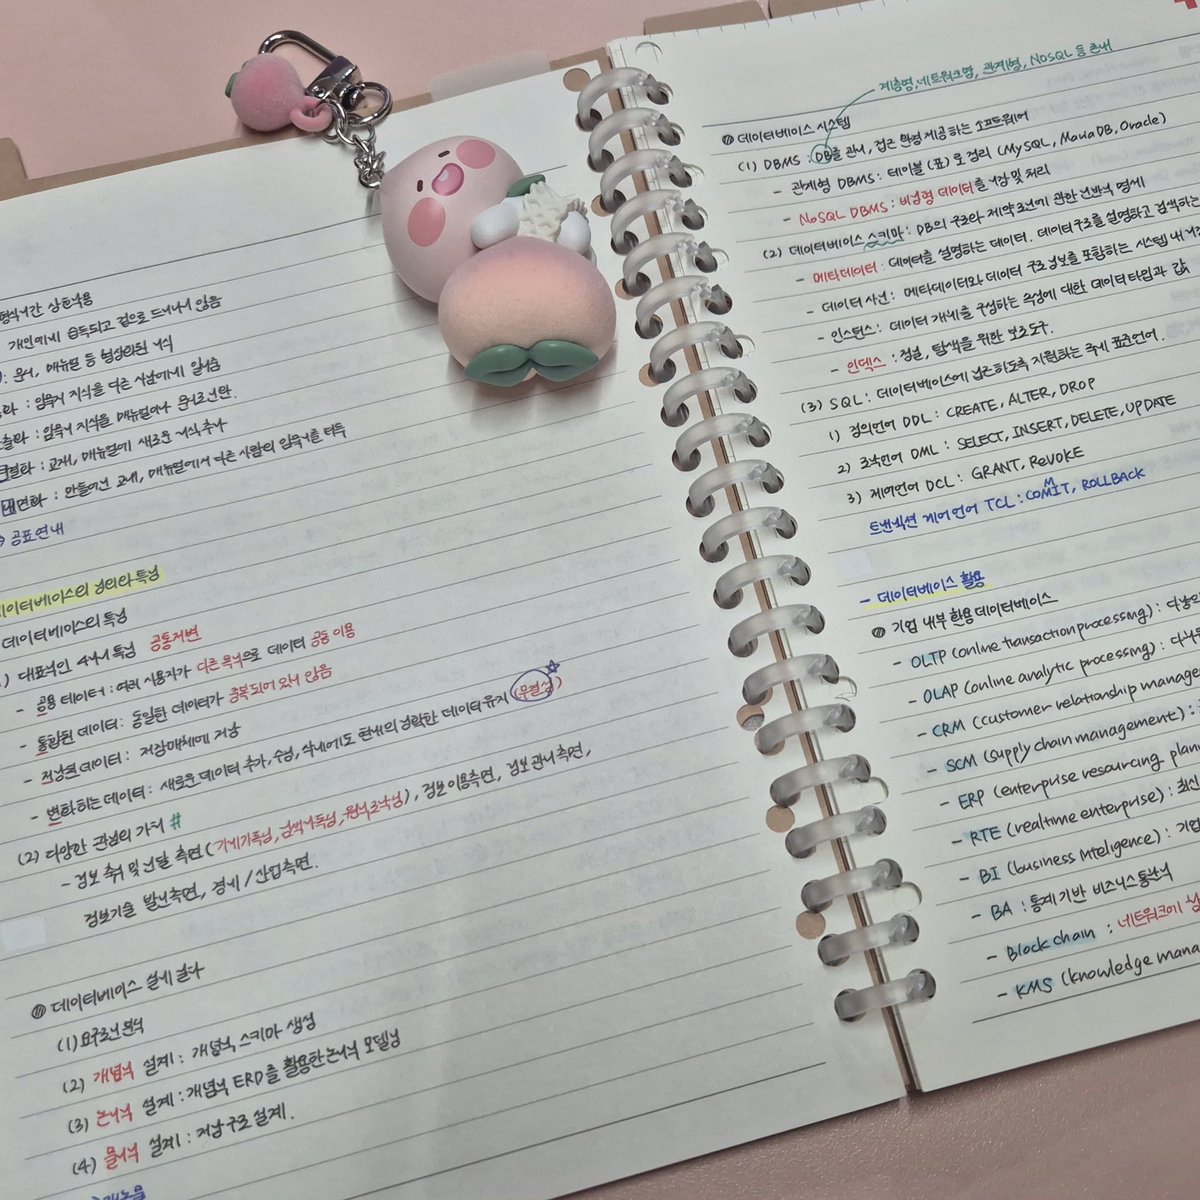 형식지간 상호작용
개인에게 습득되고 겉으로 드러나지 않음
문서, 매뉴얼 등 형상화된 지식
: 암묵적 지식을 다른 사람에게 알려줌
: 암묵적 지식을 매뉴얼이나 문서로 전환.
결화 : 교재, 매뉴얼에 새로운 지식 추가
내면화 : 만들어진 교재, 매뉴얼에서 다른 사람의 암묵지를 터득
공표연내
데이터베이스의 정의와 특징
데이터베이스의 특징
대표적인 4가지 특징 공통저변
- 공용 데이터 : 여러 사용자가 다른 목적으로 데이터 공동 이용
- 통합된 데이터 : 동일한 데이터가 중복되어 있지 않음
- 저장된 데이터 : 저장매체에 저장
- 변화하는 데이터 : 새로운 데이터 추가, 수정, 삭제에도 현재의 정확한 데이터 유지 (무결성)
(2) 다양한 관점의 가치 #
- 정보 축적 및 전달 측면 (기계가독성, 검색가독성, 원격조작성), 정보이용측면, 정보관리측면,
정보기술 발전측면, 경제/산업측면.
데이터베이스 설계 절차
(1) 요구조건 분석
(2) 개념적 설계 : 개념적 스키마 생성
(3) 논리적 설계 : 개념적 ERD를 활용한 논리적 모델링
(4) 물리적 설계 : 저장구조 설계.
계층형, 네트워크형, 관계형, NoSQL 등 존재
데이터베이스 시스템
(1) DBMS : DB를 관리, 접근 환경 제공하는 소프트웨어
- 관계형 DBMS : 테이블 (표)로 정리 (MySQL, MariaDB, Oracle)
- NoSQL DBMS : 비정형 데이터를 저장 및 처리
(2) 데이터베이스 스키마 : DB의 구조와 제약조건에 관한 전반적 명세
- 메타데이터 : 데이터를 설명하는 데이터. 데이터 구조를 설명하고 검색하는
- 데이터 사전 : 메타데이터와 데이터 구조 정보를 포함하는 시스템 내
- 인스턴스 : 데이터 개체를 구성하는 속성에 대한 데이터 타입과 값
- 인덱스 : 정렬, 탐색을 위한 보조도구.
(3) SQL : 데이터베이스에 접근하도록 지원하는 국제 표준언어.
1) 정의언어 DDL : CREATE, ALTER, DROP
2) 조작언어 DML : SELECT, INSERT, DELETE, UPDATE
3) 제어언어 DCL : GRANT, REVOKE
트랜젝션 제어언어 TCL : COMMIT, ROLLBACK
- 데이터베이스 활용
기업 내부 활용 데이터베이스
- OLTP (online transaction processing) :
- OLAP (online analytic processing) :
- CRM (customer relationship manage
- SCM (supply chain management) :
- ERP (enterprise resourcing plan
- RTE (realtime enterprise) : 최신
- BI (business inteligence) : 기업
- BA : 통계 기반 비즈니스 통찰력
- Blockchain : 네트워크에
- KMS (knowledge mana